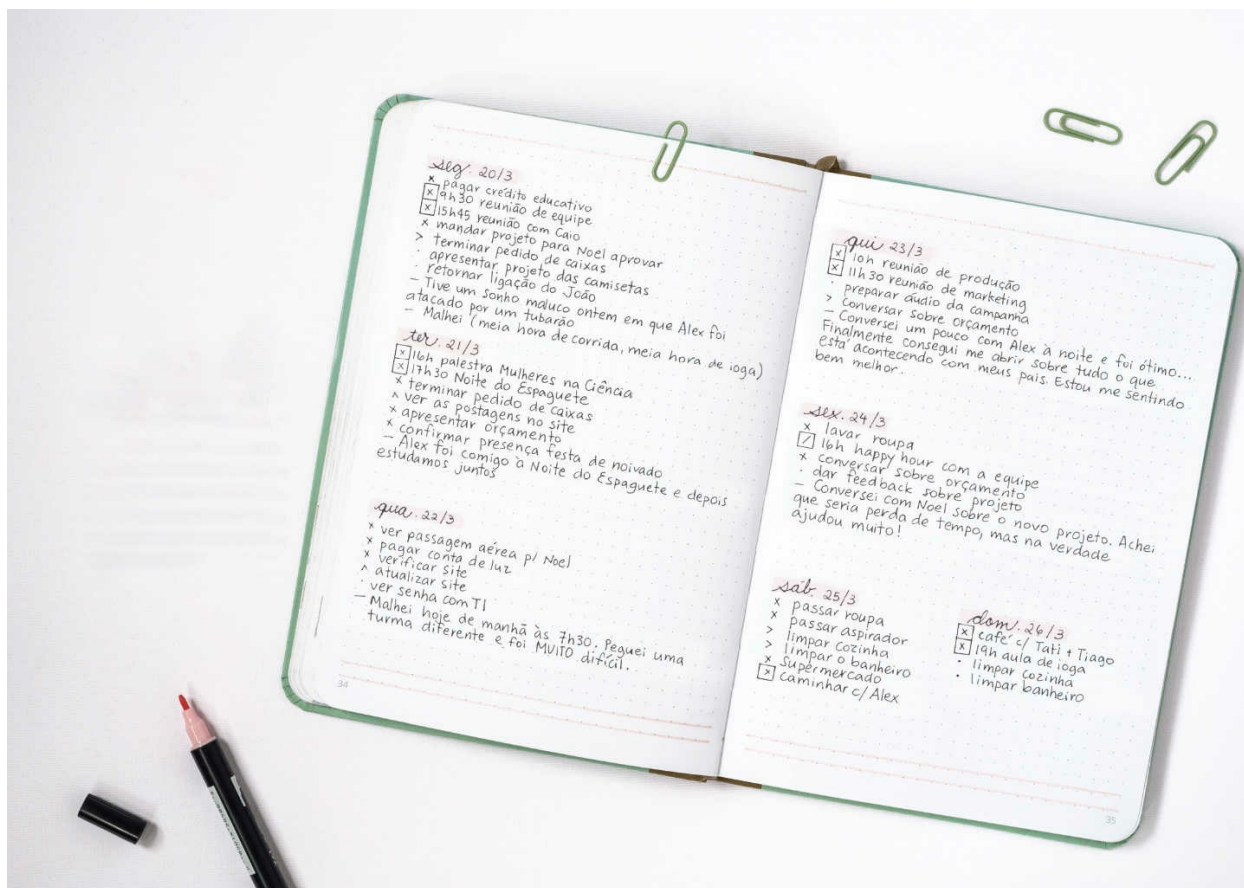 seg. 20/3
x pagar crédito educativo
x 9h30 reunião de equipe
x 15h45 reunião com Caio
x mandar projeto para Noel aprovar
> terminar pedido de caixas
· apresentar projeto das camisetas
· retornar ligação do João
– Tive um sonho maluco ontem em que Alex foi
atacado por um tubarão
– Malhei (meia hora de corrida, meia hora de ioga)
ter. 21/3
x 16h palestra Mulheres na Ciência
x 17h30 Noite do Espaguete
x terminar pedido de caixas
^ ver as postagens no site
x apresentar orçamento
x confirmar presença festa de noivado
– Alex foi comigo à Noite do Espaguete e depois
estudamos juntos
qua. 22/3
x ver passagem aérea p/ Noel
x pagar conta de luz
x verificar site
^ atualizar site
· ver senha com TI
– Malhei hoje de manhã às 7h30. Peguei uma
turma diferente e foi MUITO difícil.
34
qui 23/3
x 10h reunião de produção
x 11h30 reunião de marketing
· preparar áudio da campanha
> Conversar sobre orçamento
– Conversei um pouco com Alex à noite e foi ótimo...
Finalmente consegui me abrir sobre tudo o que
está acontecendo com meus pais. Estou me sentindo
bem melhor.
sex. 24/3
x lavar roupa
/ 16h happy hour com a equipe
x conversar sobre orçamento
· dar feedback sobre projeto
– Conversei com Noel sobre o novo projeto. Achei
que seria perda de tempo, mas na verdade
ajudou muito!
sáb. 25/3
x passar roupa
x passar aspirador
> limpar cozinha
> limpar o banheiro
x supermercado
> caminhar c/ Alex
dom. 26/3
x café c/ Tati + Tiago
x 19h aula de ioga
· limpar cozinha
· limpar banheiro
35